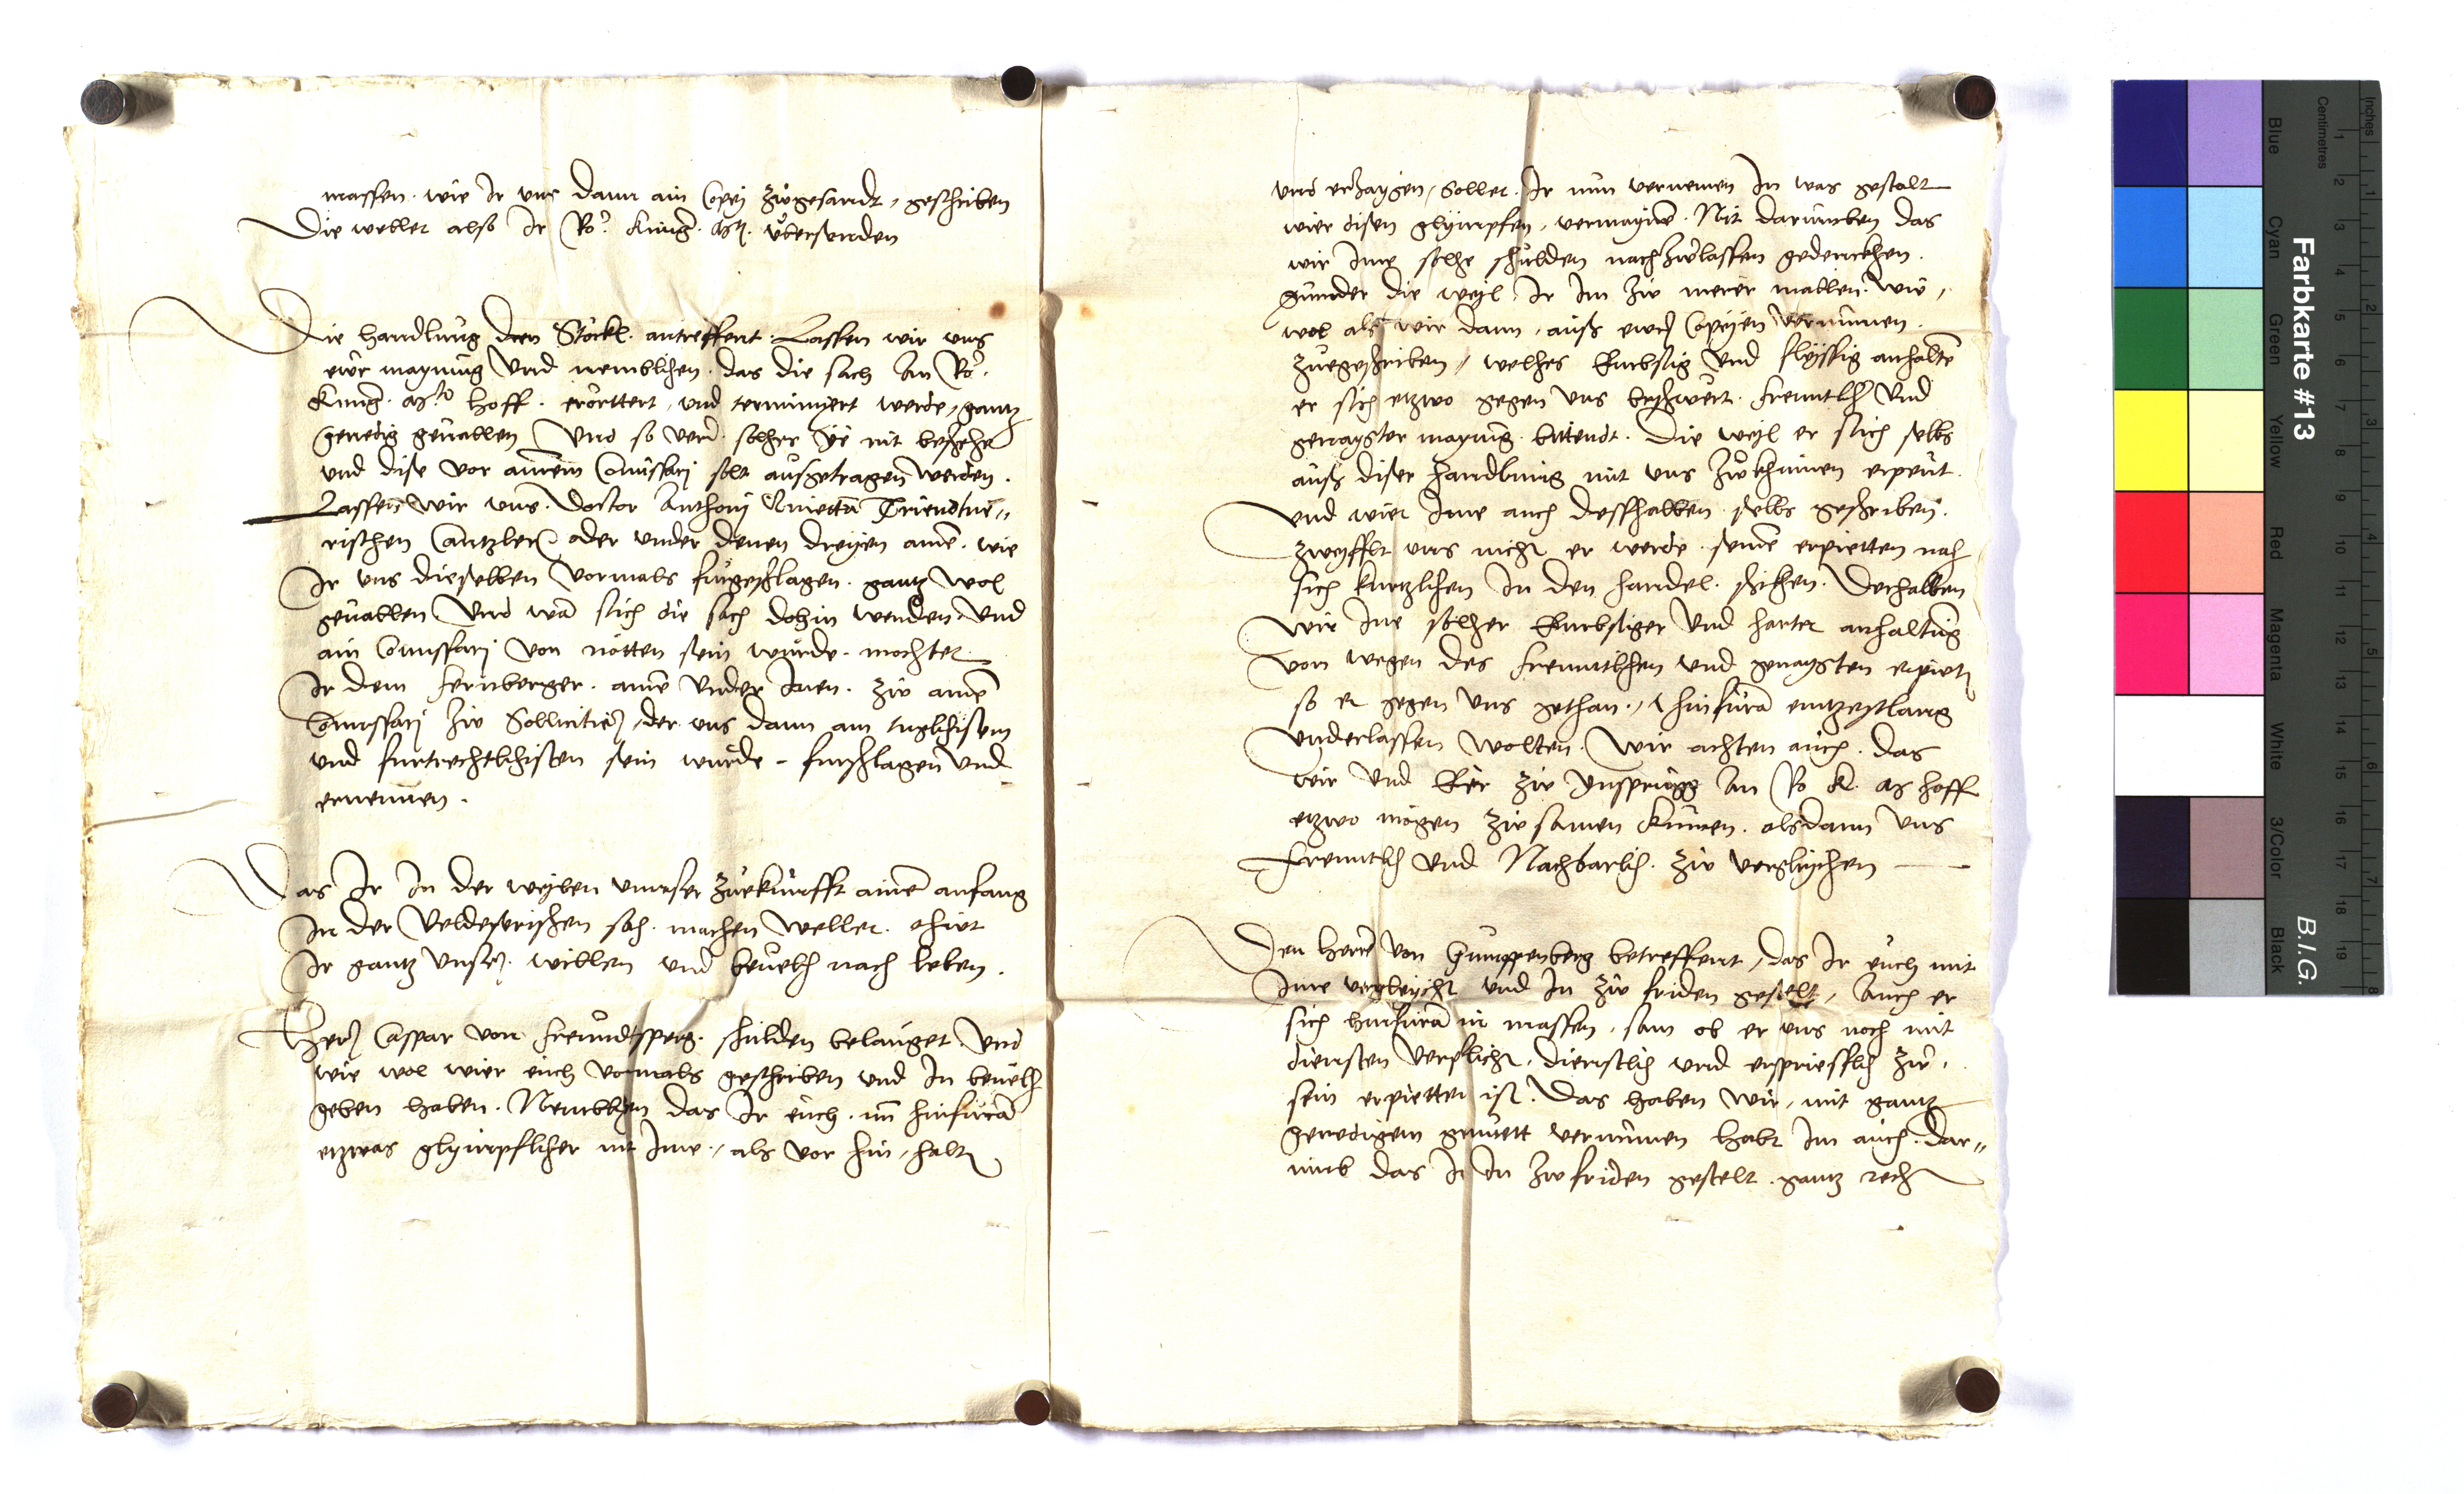 massen. wie Ir vns dann ain Copej zůgesandt, geschriben
Die wellet also Ir Rö. Küng. Mt. übersenden
Die handlung den Stöckl. antreffent. Lassen wir vns
ewr maynung Vnd nemblichen. das die sach An Rö.
Küng. Mt. hoff. erörttert, vnd terminiert werde, gantz
genedig geuallen Vnd so verr. solhes ye nit beschehe
vnd dise vor ainem Comissarj solt ausgetragen werden.
Lassen wir vns. Doctor Anthonj Quetta Triendtne„
rischen Cantzler oder vnder denen dreyen ainē. wie
Ir vns dieselben Vormals fürgeschlagen. gantz wol
geuallen Vnd wā sich die sach dohin wenden Vnd
ain Comissarj Von nötten sein würde. mochtet
Ir dem Fernberger. ainē Vnder Inen. zů ainē
Comissarj zů Sollicitiern, der vns dann am tuglichisten
vnd furtrechtlichisten sein wurde. furschlagen Vnd
ernennen.
Das Ir In der weylen vnnser zůekunfft ainē anfang
In der Veldeserischen sach. machen Wellet. thiet
Ir gantz Vnsern. willen vnd beuelh nach leben.
Herrn Caspar von Freundtsperg. schulden belanget. Vnd
wie wol wier euch vormals geschriben vnd In beuelh
geben haben. Nemblichen das Ir euch. nun hinfuran
etzwas glympflicher mit Ime, als vor hin, halten
vnd erzaygen, Sollet. Ir nun vernemen In was gestalt
wier disen glympfen, vermaynē. Nit darumben das
wir Ime solhe schulden nachzůlassen gedenckhen.
Sunnder die weyl Ir Im zů merer mallen. wie,
wol als wir dann, auss ewern Copeyen Vernumen.
zůegeschriben, welhes Embssig Vnd flyssig anhaltē
er sich etzwo gegen vns beschwert. freuntlich Vnd
genaygter maynung. bittendt. Die weyl er sich selbs
auss diser handlung mit vns zůkhumen erpeut.
Vnd wier Ime auch desshalben selbs geschriben.
zweyfflt vns nicht er werde. seinē erpietten nach
sich kurtzlichen In den handel. schicken. Derhalben
Wir Ime solher Embssiger Vnd harter anhaltung
Von wegen des freuntlichen vnd genaygten erpieten
so er gegen Vns gethan, hinfuran ain zeytlang
Vnderlassen Wolten. Wir achten auch. das
wir Vnd Eer zů Ynsprugg An Rö K. Mt hoff
etzwo mögen zůsamen kumen. alsdann Vns
Freuntlich vnd Nachbarlich. zů verglychen
Den herrn Von Gumppenberg betreffent, das Ir euch mit
Ime vergleycht vnd In zů friden gestelt, Auch er
sich hinfuran in massen, sam ob er vns noch mit
diensten verpflicht, dienstlich vnd erspriesslich zů,
sein erpietten ist. Das haben Wir, mit gantz
genedigem gemuett vernumen habt Im auch. dar„
umb das Ir In zůfriden gestelt. gantz recht